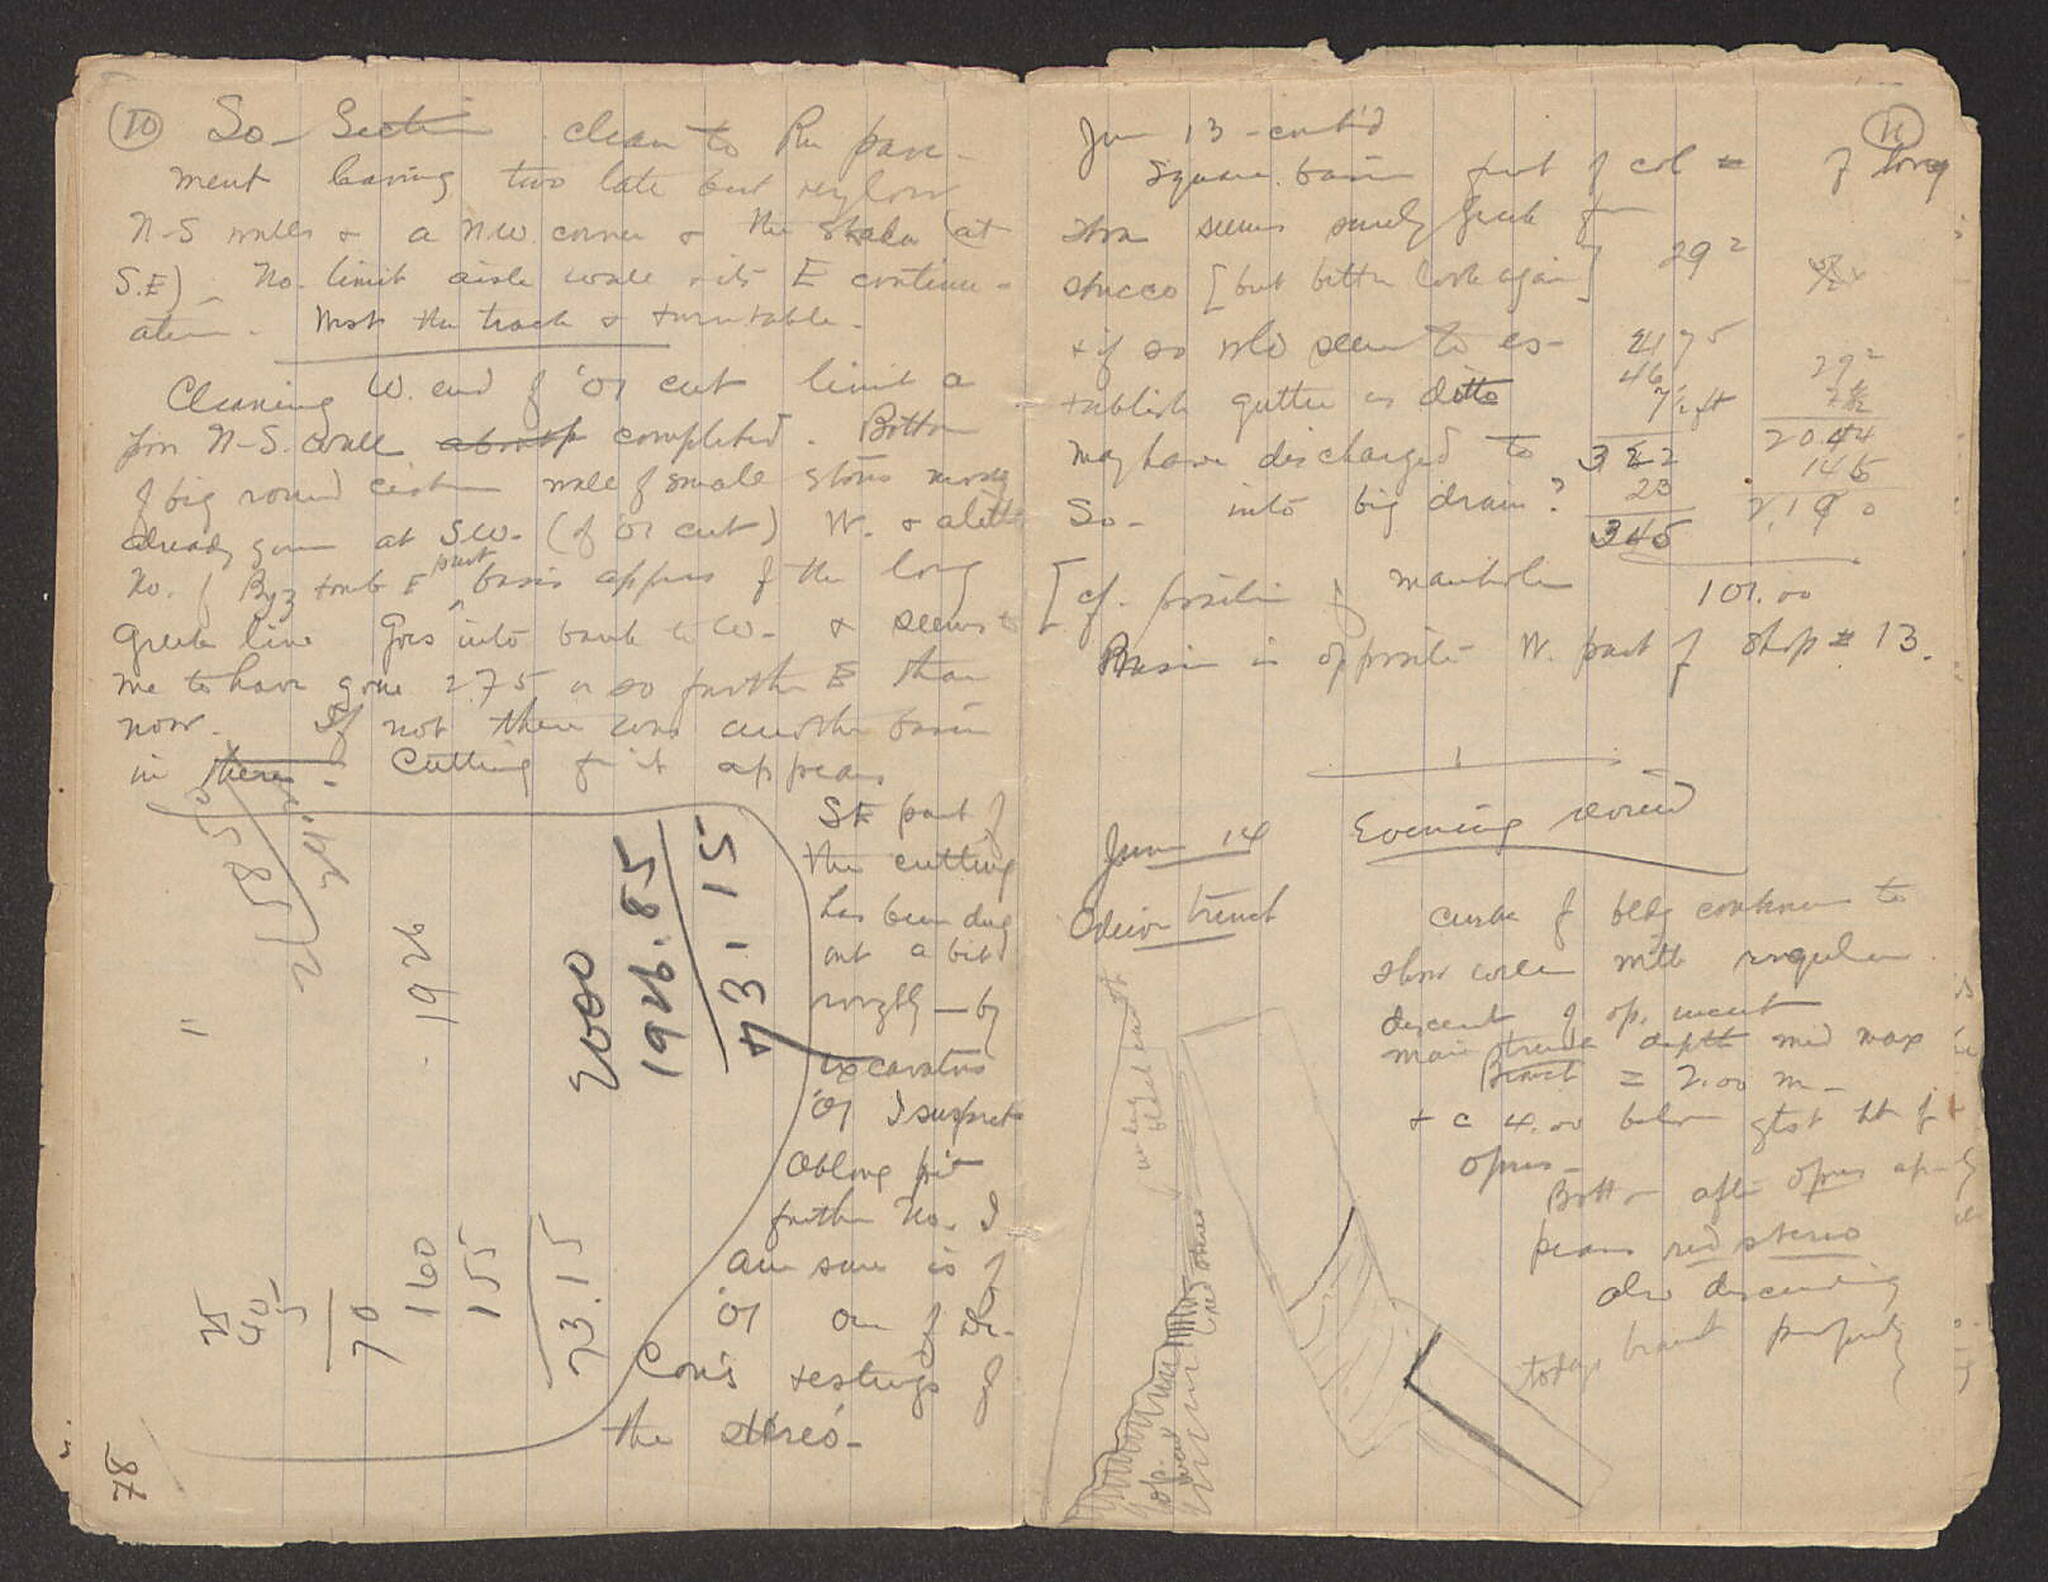 (10) So- Section clean to Rm pave-
ment leaving two late but very low
N-S walls & a NW. corner & the Skala (at
S.E) - No. limit aisle wall & its E continu-
ation. Most the track & turntable.
Cleaning W. end of '01 cut limit a
N-S. wall completed. Bottom
of big round cistern wall of small stones mostly
already gone at SW. (of '01 cut) W. & a little
No. of Byz tomb E part basin appears of the long
Greek line Goes into bank to W- & seems to
me to have gone 2.75 or so further E than
now. If not there was another basin
in there - Cutting for it appears
SE part of
the cutting
has been dug
out a bit
roughly - by
excavators
'01 I suspect
Oblong pit
further No. I
am sure is of
'01 one of Dr-
testings of
the
2000
1926.85
73.15
1926
=
25
40
5
70
160
155
73.15
78
Jun 13 - cont'd (11)
Square basin front of col of long
stoa seems surely Greek
stucco [but better look again] 29²
& if so wld seem to es-
tablish gutter as ditto
may have discharged to
So- into big drain?
46
7½ ft
322
23
345
29²
2044
146
2190
[cf. position of manhole 101.00
Basin is opposite W. part of shop # 13.
June 14 Evening round
Odeion trench
curve of bldg continues to
show well with regular
descent of op. incert
main trench depth
Branch = 2.00 m-
& c 4.00 below gtst ht of
opus-
Bottom after opus ap-
pears red stereo
also descending
today
op.
red stereo